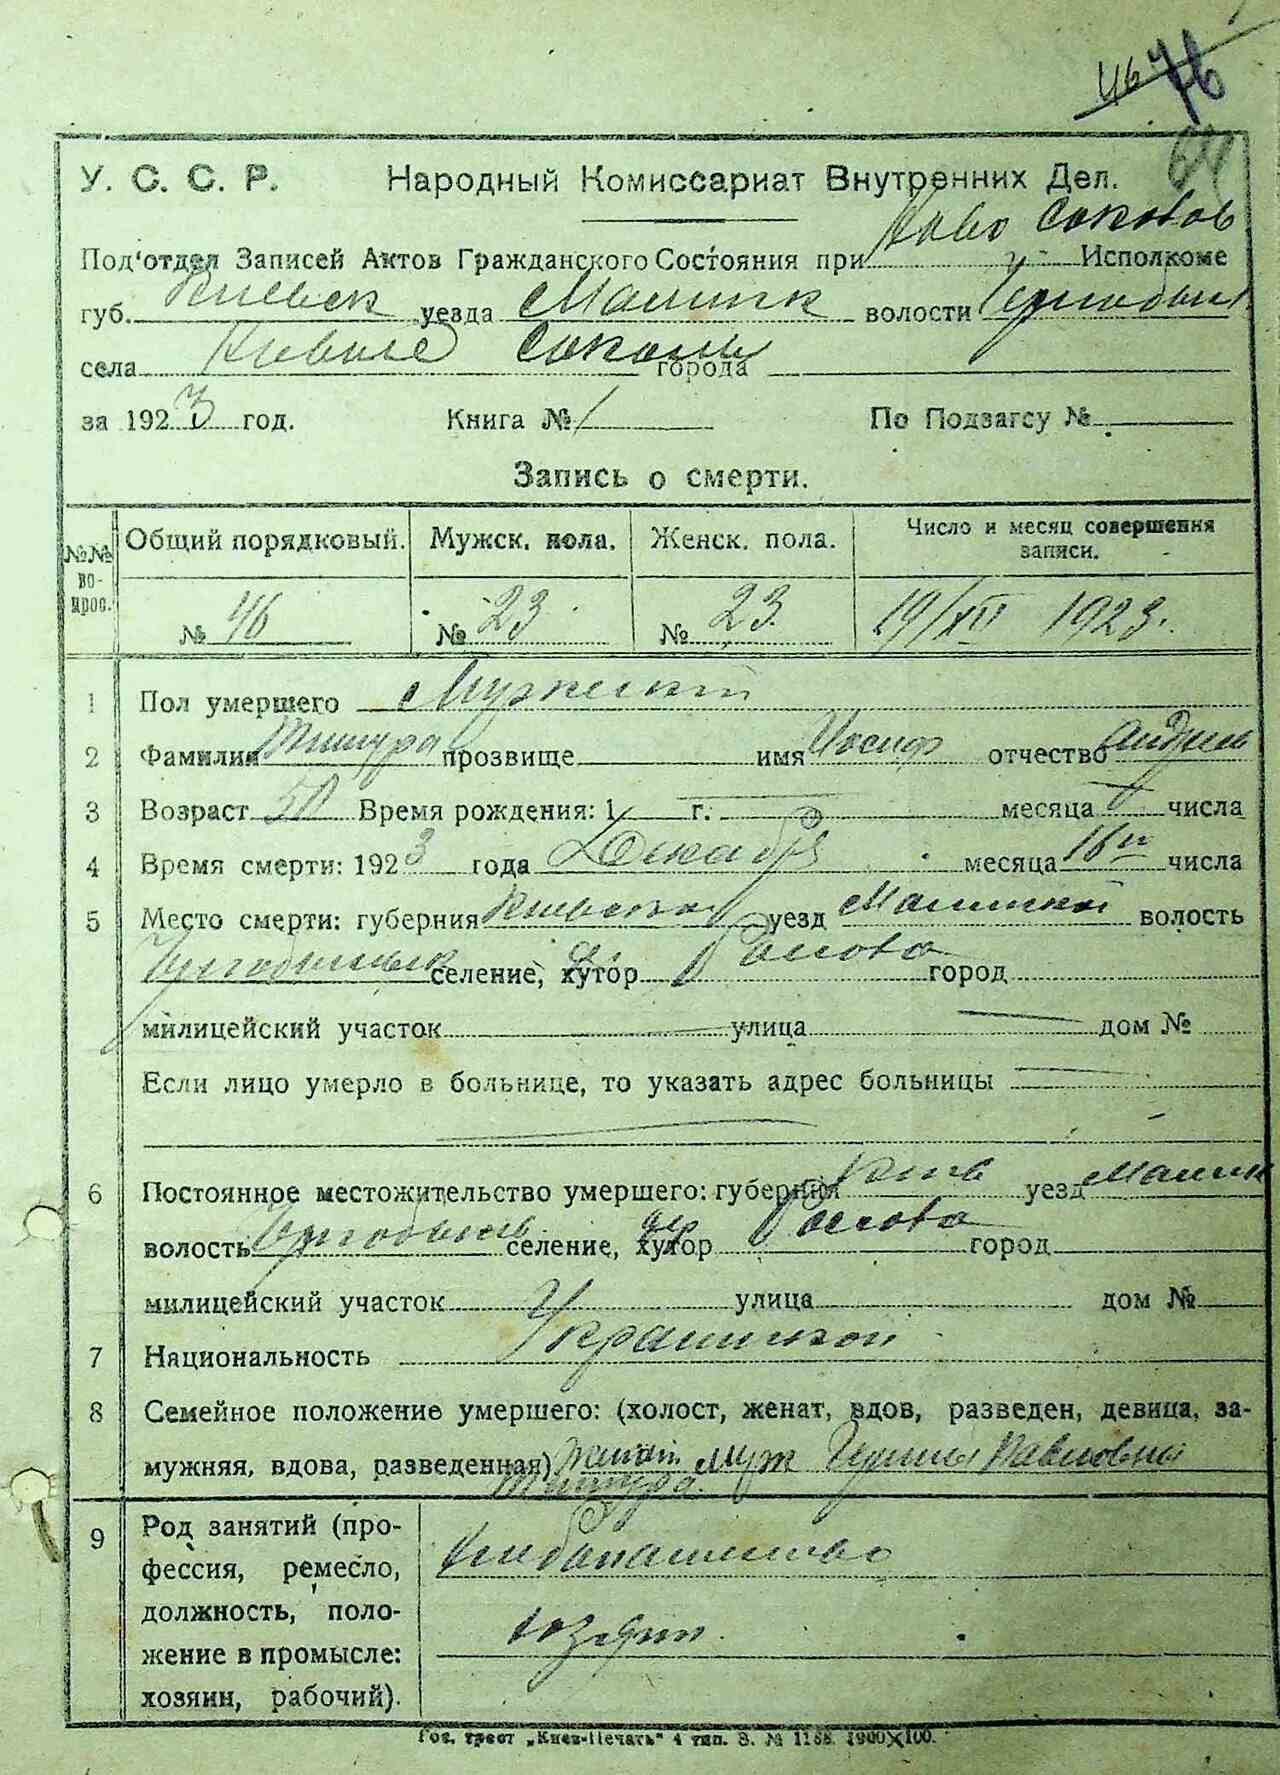 46 76
64
У. С. С. Р. Народный Комиссариат Внутренних Дел.
Ново Соколов
Под'отдел Записей Актов Гражданского Состояния при Исполкоме
губ. Киевск уезда Малинск волости
села Новые Соколы города
за 1923 год. Книга № 1 По Подзагсу №
Запись о смерти.
№№ вопрос. Общий порядковый. Мужск. пола. Женск. пола. Число и месяц совершения записи.
№ 46 № 23 № 23 19/XII 1923.
1 Пол умершего Мужеский
2 Фамилия прозвище имя Иосиф отчество Андрее
3 Возраст 50 Время рождения: 1 г. месяца числа
4 Время смерти: 1923 года Декабря месяца 16го числа
5 Место смерти: губерния Киевская уезд Малинский волость
селение, хутор город
милицейский участок улица дом №
Если лицо умерло в больнице, то указать адрес больницы
6 Постоянное местожительство умершего: губерния Киев уезд Малинск
волость селение, хутор город
милицейский участок улица дом №
7 Национальность
8 Семейное положение умершего: (холост, женат, вдов, разведен, девица, за-
мужняя, вдова, разведенная) женат муж Павловны
9 Род занятий (про-
фессия, ремесло,
должность, поло-
жение в промысле:
хозяин, рабочий).
Хлебопашество
Гос. трест „Киев-Печать" 4 тип. З. № 1188. 1900×100.